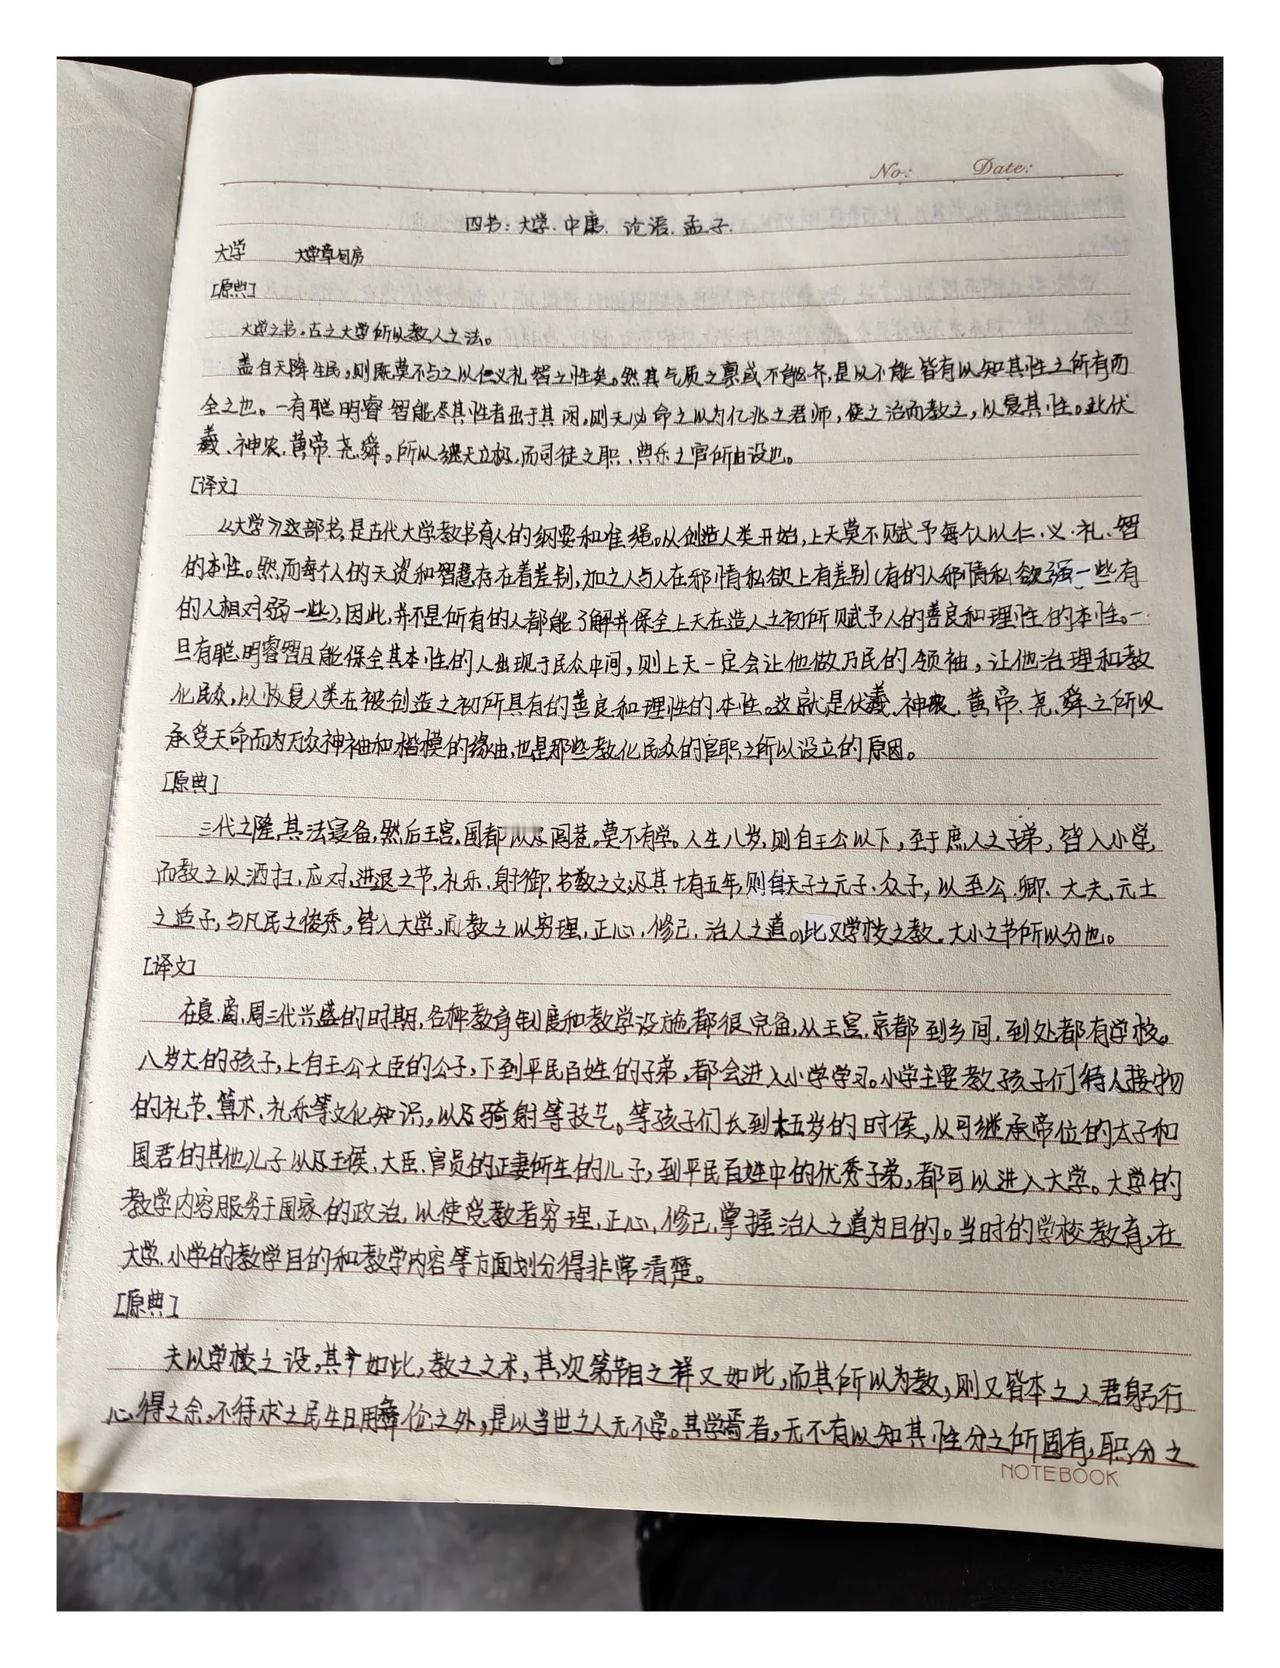 No: Date:
四书：大学. 中庸. 论语. 孟子.
大学 大学章句序
[原典]
大学之书，古之大学所以教人之法。
盖自天降生民，则既莫不与之以仁义礼智之性矣。然其气质之禀或不能齐，是以不能皆有以知其性之所有而
全之也。一有聪明睿智能尽其性者出于其间，则天必命之以为亿兆之君师，使之治而教之，以复其性。此伏
羲、神农、黄帝、尧、舜。所以继天立极，而司徒之职、典乐之官所由设也。
[译文]
《大学》这部书，是古代大学教书育人的纲要和准绳。从创造人类开始，上天莫不赋予每个人以仁·义·礼、智
的本性。然而每个人的天资和智慧存在着差别，加之人与人在邪情私欲上有差别（有的人邪情私欲强一些有
的人相对弱一些），因此，并不是所有的人都能了解并保全上天在造人之初所赋予人的善良和理性的本性。一
旦有聪明睿智且能保全其本性的人出现于民众中间，则上天一定会让他做万民的领袖，让他治理和教
化民众，以恢复人类在被创造之初所具有的善良和理性的本性。这就是伏羲、神农、黄帝、尧、舜之所以
承受天命而为万众神袖和楷模的缘由，也是那些教化民众的官职之所以设立的原因。
[原典]
三代之隆，其法寝备，然后王宫、国都以及闾巷。莫不有学。人生八岁，则自王公以下，至于庶人之子弟，皆入小学，
而教之以洒扫、应对、进退之节，礼乐、射御、书数之文；及其十有五年，则自天子之元子、众子，以至公、卿、大夫、元士
之适子，与凡民之俊秀，皆入大学，而教之以穷理，正心，修己，治人之道。此又学校之教。大小之节所以分也。
[译文]
在夏、商、周三代兴盛的时期，各种教育制度和教学设施都很完备，从王宫、京都到乡间，到处都有学校。
八岁大的孩子，上自王公大臣的公子，下到平民百姓的子弟，都会进入小学学习。小学主要教孩子们待人接物
的礼节、算术、礼乐等文化知识，以及骑射等技艺。等孩子们长到十五岁的时候，从可继承帝位的太子和
国君的其他儿子以及王侯、大臣、官员的正妻所生的儿子，到平民百姓中的优秀子弟，都可以进入大学。大学的
教学内容服务于国家的政治，以使受教者穷理，正心，修己，掌握治人之道为目的。当时的学校教育，在
大学、小学的教学目的和教学内容等方面划分得非常清楚。
[原典]
夫以学校之设，其广如此，教之之术，其次第节目之详又如此，而其所以为教，则又皆本之人君躬行
心得之余，不待求之民生日用彝伦之外，是以当世之人无不学。其学焉者，无不有以知其性分之所固有，职分之
NOTEBOOK